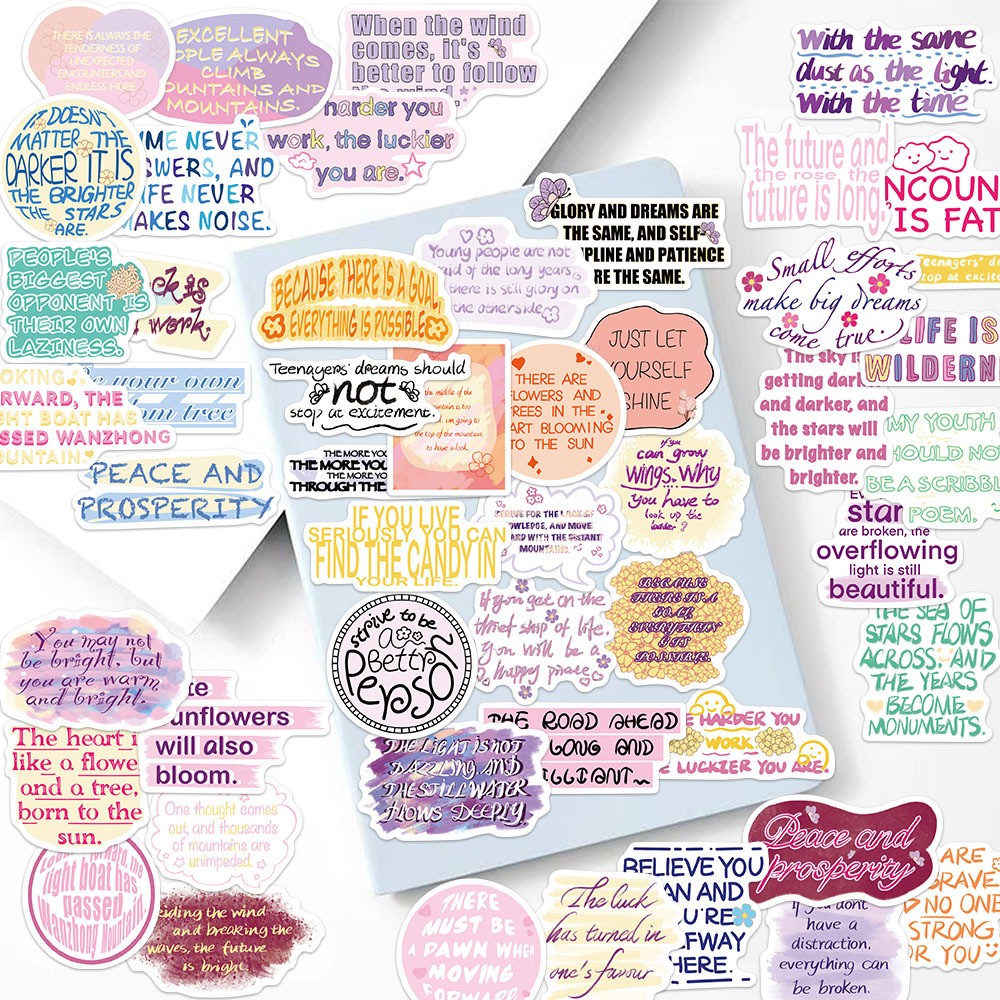 THERE IS ALWAYS THE
TENDERNESS OF
UNEXPECTED
ENCOUNTERS AND
ENDLESS HOPE
EXCELLENT
OPLE ALWAYS
CLIMB
OUNTAINS AND
MOUNTAINS.
When the wind
comes, it's
better to follow
the wind.
With the same
dust as the light.
With the time
IT DOESN'T
MATTER, THE
DARKER IT IS
THE BRIGHTER
THE STARS
ARE.
ME NEVER
SWERS, AND
IFE NEVER
MAKES NOISE.
harder you
work, the luckier
you are.
The future and
the rose, the
future is long,
NCOUN
IS FAT
GLORY AND DREAMS ARE
THE SAME, AND SELF-
PLINE AND PATIENCE
RE THE SAME.
PEOPLE'S
BIGGEST
OPPONENT IS
THEIR OWN
LAZINESS.
ck is
work,
BECAUSE THERE IS A GOAL,
EVERYTHING IS POSSIBLE
Young people are not
aid of the long years,
there is still glory on
the otherside.
Small efforts
make big dreams
come true.
Teenagers' dr
top at excite
JUST LET
YOURSELF
SHINE
LIFE IS
WILDERN
OKING
RWARD, THE
GHT BOAT HAS
SSED WANZHONG
UNTAIN.
Be your own
own tree
Teenagers' dreams should
not
stop at excitement.
the middle of the
mountain is too
d. i'm going to
the top of the mountain
to have a look.
THERE ARE
FLOWERS AND
TREES IN THE
ART BLOOMING
TO THE SUN
The sky i
getting dark
and darker, and
the stars will
be brighter and
brighter.
MY YOUTH
HOULD NO
BE A SCRIBBL
POEM.
PEACE AND
PROSPERITY
THE MORE YOU
THE MORE YOU
THE MORE YOU
THROUGH THE
if you
can grow
wings. Why
you have to
look up the
ladder?
IF YOU LIVE
SERIOUSLY, YOU CAN
FIND THE CANDY IN
YOUR LIFE.
STRIVE FOR THE LACK OF
OWLEDGE, AND MOVE
ARD WITH THE DISTANT
MOUNTAINS.
Ev
star
are broken, the
overflowing
light is still
beautiful.
strive to be
a
Betty
Person
If you get on the
thief ship of life,
you will be a
happy pirate
BECAUSE
THERE IS A
GOAL,
EVERYTHING
IS
POSSIBLE.
THE SEA OF
STARS FLOWS
ACROSS, AND
THE YEARS
BECOME
MONUMENTS.
You may not
be bright, but
you are warm
and bright.
te
unflowers
will also
bloom.
THE ROAD AHEAD
LONG AND
ILLIANT
E HARDER YOU
WORK,
E LUCKIER YOU ARE.
The heart i
like a flowe
and a tree,
born to the
sun.
THE LIGHT IS NOT
DAZZLING, AND
THE STILL WATER
FLOWS DEEPLY.
One thought comes
out, and thousands
of mountains are
unimpeded.
forward, the
light boat has
passed
Wanzhong Mountain
eiding the wind
and breaking the
waves, the future
is bright.
THERE
MUST BE
A DAWN WHEN
MOVING
FORWARD
The luck
has turned in
one's favour
BELIEVE YOU
AN AND
U'RE
LFWAY
HERE.
Peace and
prosperity
if you dont
have a
distraction,
everything can
be broken.
ARE
BRAVE
NO ONE
STRONG
OR YOU